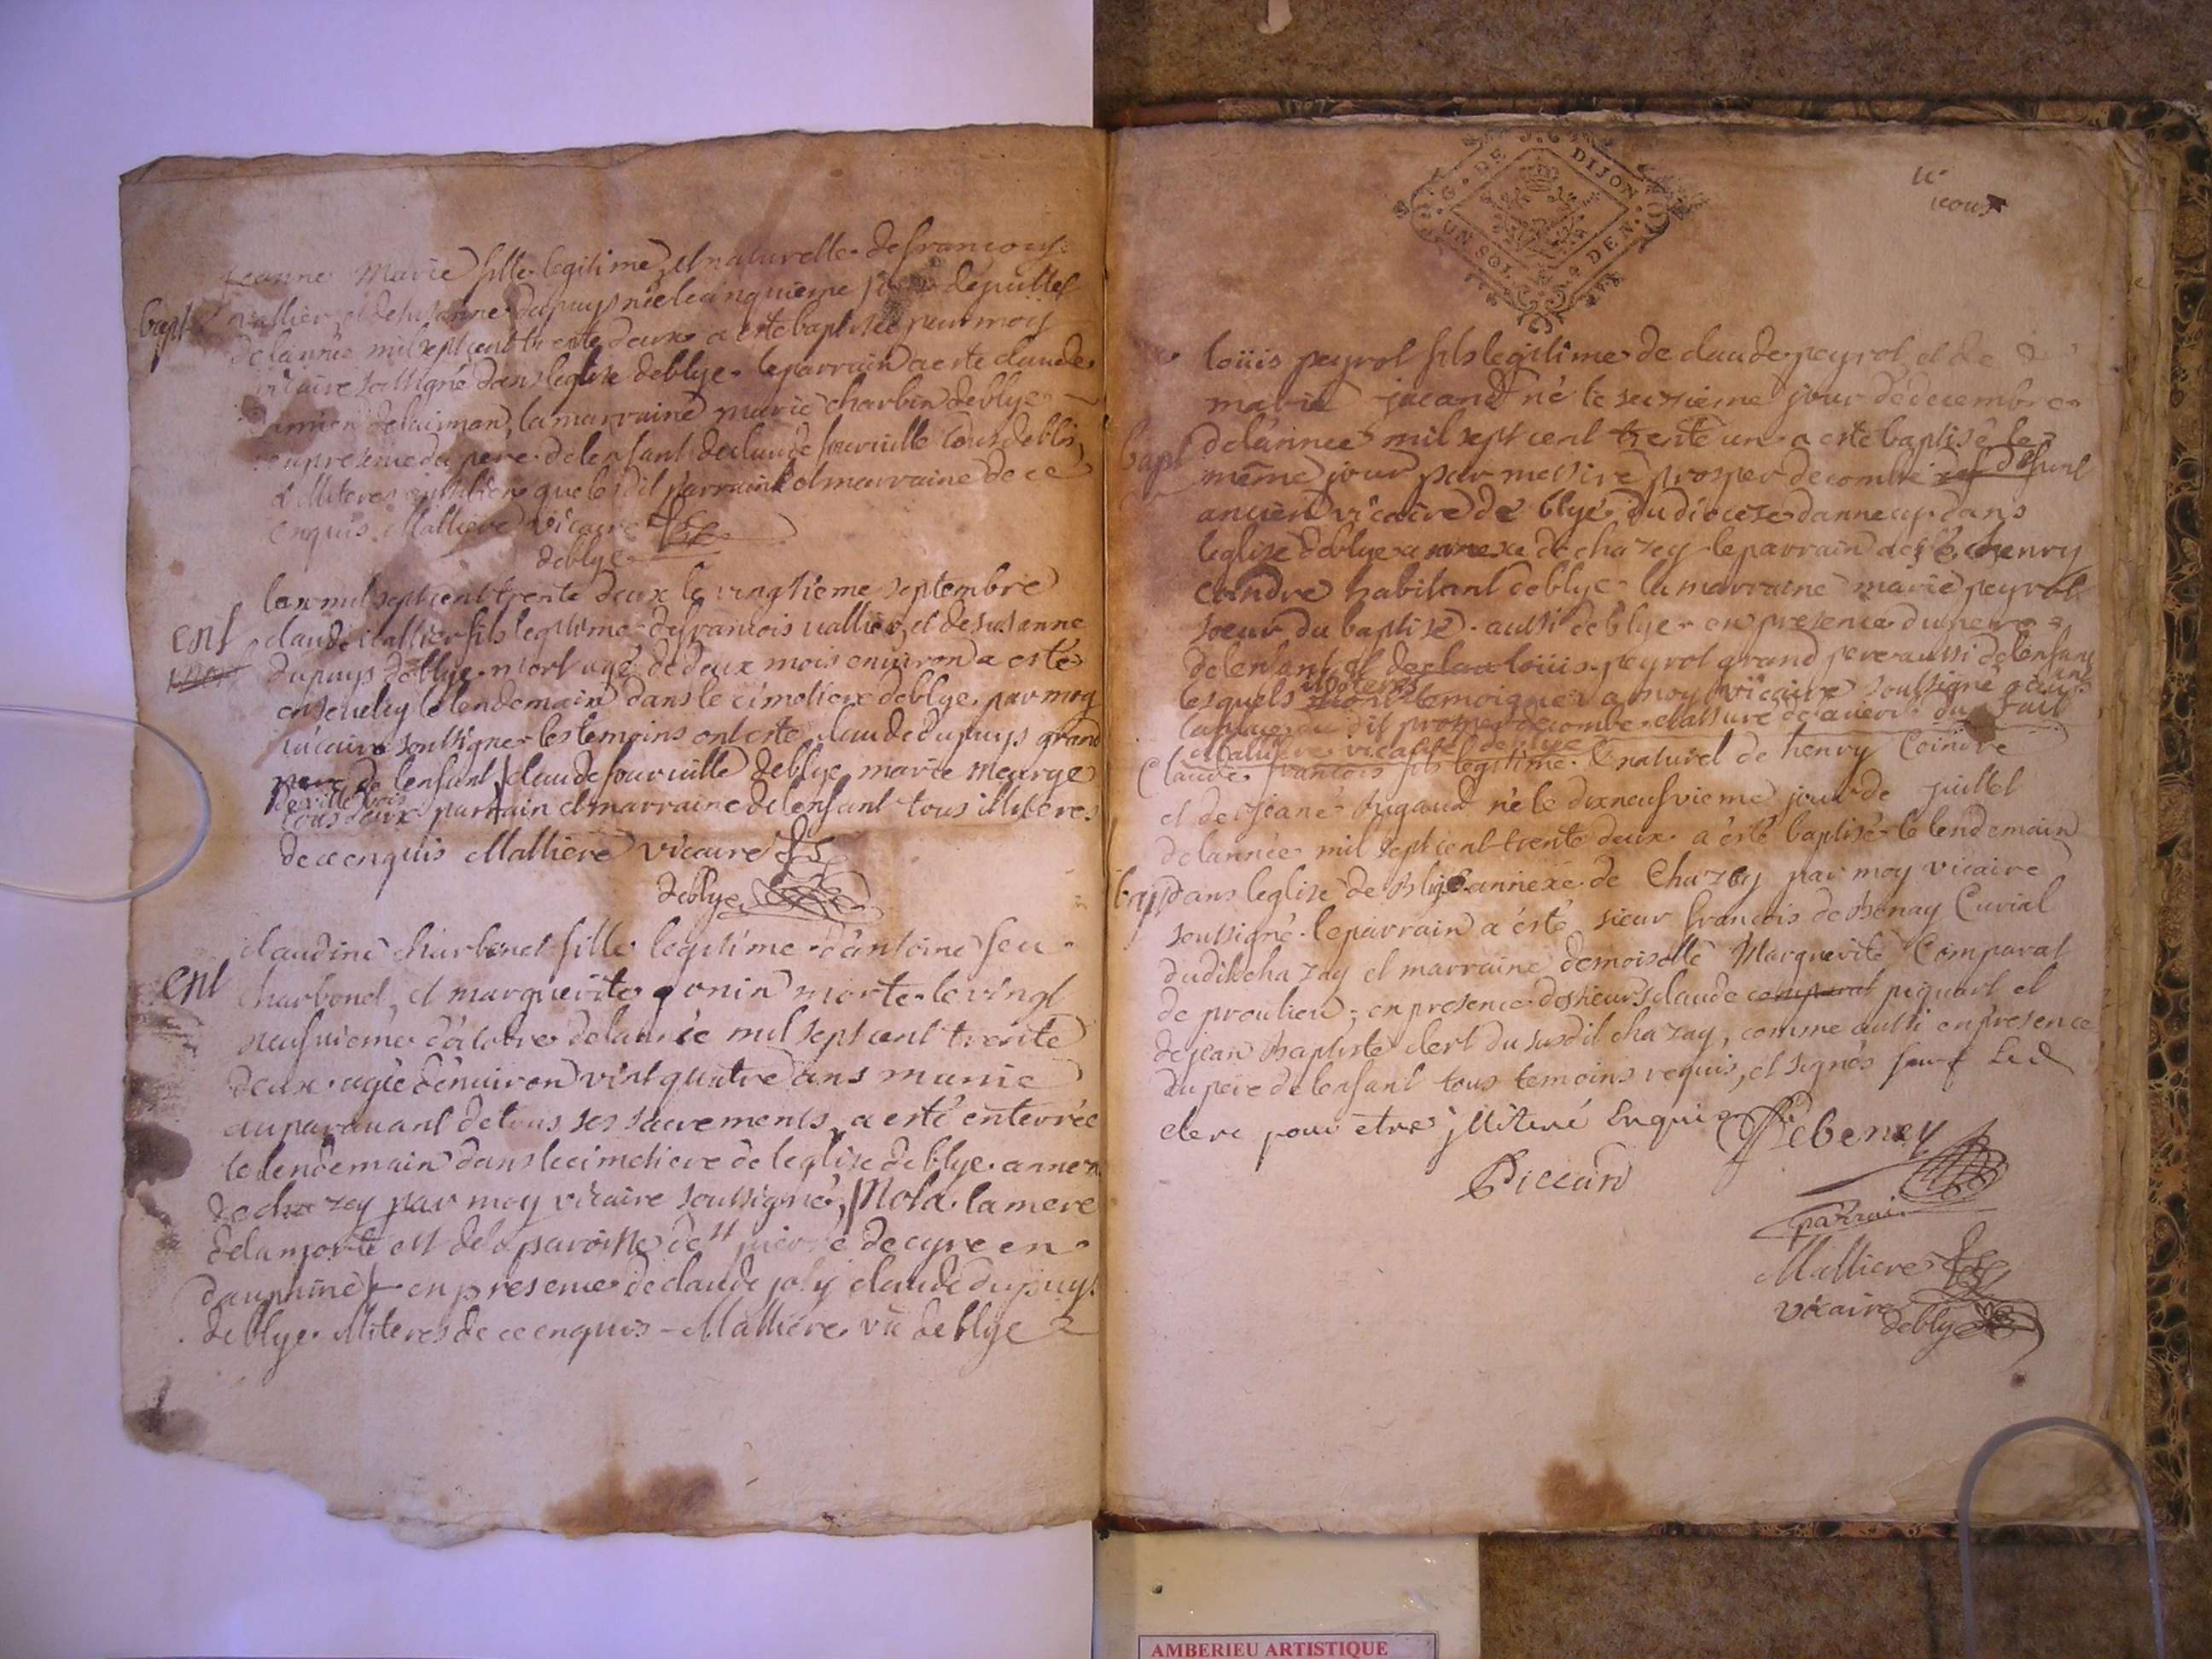 jeanne Marie fille legitime et naturelle de francois
bapt vallier et de susanne dupuys née le cinquieme jour de juillet
de lannée mil sept cent trente deux a esté baptisée par moy
vicaire soussigné dans leglise de blye. le parrain a esté claude
la marraine marie charbin de blye
en presence du pere de lenfant de claude fourville tous de blie
illiteres aussi bien que lesdit parrain et marraine de ce
enquis Malliere vicaire
de blye
lan mil sept cent trente deux le vingtieme septembre
ent claude vallier fils legitime de francois vallier et de susanne
dupuys de blye mort agé de deux mois environ a esté
ensevely le lendemain dans le cimetiere de blye. par moy
vicaire soussigné les temoins ont esté claude dupuys grand
pere de lenfant claude fourville de blye marie mearge
tous deux parrain et marraine de lenfant tous illiteres
de ce enquis Malliere vicaire
de blye
claudine charbonet fille legitime dantoine feu
ent charbonet, et marguerite onin morte le vingt
neufvieme doctobre de lannée mil sept cent trente
deux agée denviron vint quatre ans munie
auparavant de tous ses sacrements a esté enterrée
le lendemain dans le cimetiere de leglise de blye annexe
de chazey par moy vicaire soussigné, Nota. la mere
de la morte est de la paroisse de st pierre de cyre en
dauphiné en presence de claude joly claude dupuys
de blye illiteres de ce enquis Mallière vic de blye
G. DE DIJON
UN SOL 4 DEN.
loüis peyrot fils legitime de claude peyrot et de
marie jacand né le seizieme jour de decembre
bapt de lannee mil sept cent trente un a esté baptisé le
même jour par messire prosper decombe
ancien vicaire de blye du diocese dannecy dans
leglise de blye annexe de chazey le parrain a esté henry
coindre habitant de blye la marraine marie peyrot
soeur du baptisé aussi de blye en presence du pere
de lenfant et loüis peyrot grand pere aussi de lenfant
lesquels temoigner a moy vicaire soussigné
dit prosper decombe et assuré
Malliere vicaire de blye
Claude francois fils legitime & naturel de henry Coindre
et de jeane Rigaud né le dixneufvieme jour de juillet
de lannée mil sept cent trente deux a été baptisé le lendemain
bapt dans leglise de Blye annexe de Chazey par moy vicaire
soussigné. le parrain a été sieur francois de Benay Curial
dudit chazay et marraine demoiselle Marguerite Comparat
de proulieu; en presence des sieurs claude comparat piquart et
de jean Baptiste clert du susdit chazay, comme aussi en presence
du pere de lenfant tous temoins requis, et signés sauf Led
clere pour etre jlliteré Enquis Debeney
Piccard
parrain
Malliere
vicaire
de blye
AMBERIEU ARTISTIQUE